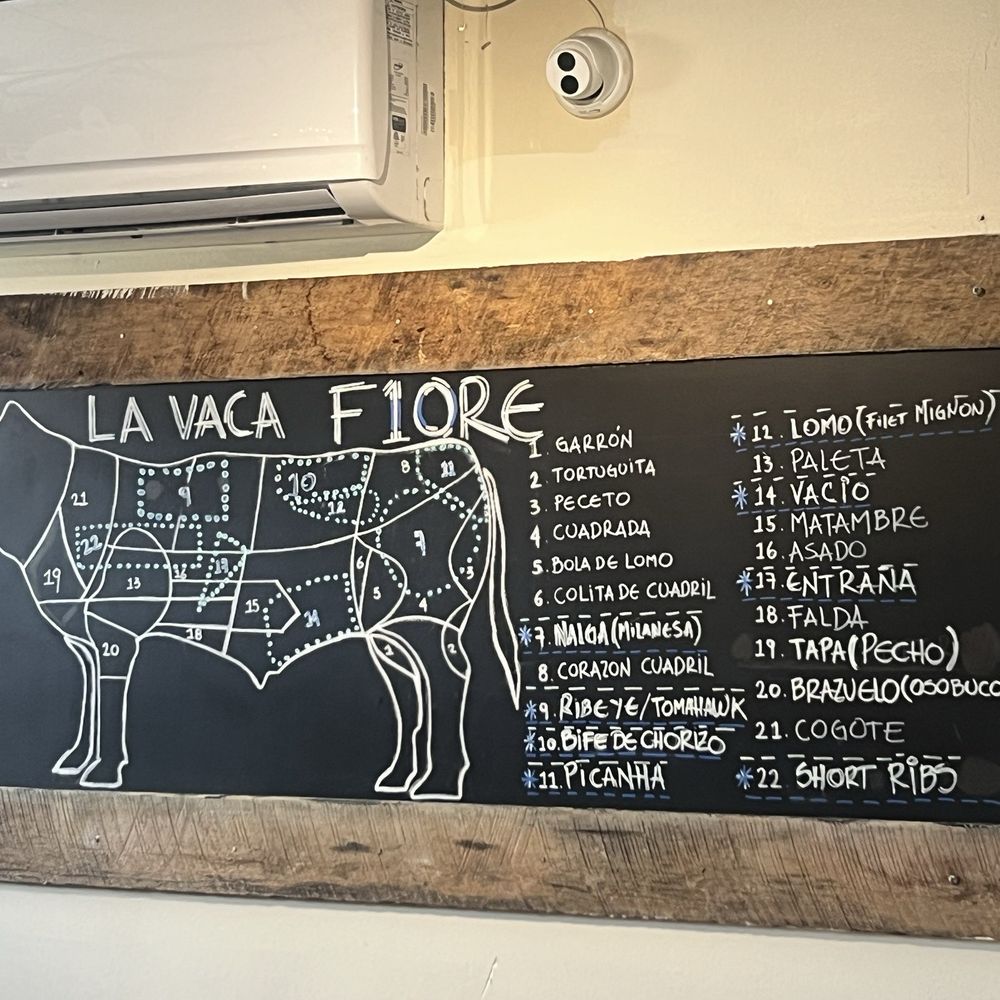 LA VACA F10RE
1. GARRÓN
2. TORTUGUITA
3. PECETO
4. CUADRADA
5. BOLA DE LOMO
6. COLITA DE CUADRIL
* 7. NALGA (MILANESA)
8. CORAZON CUADRIL
* 9. RIBEYE/TOMAHAWK
* 10. BIFE DE CHORIZO
* 11. PICANHA
* 12. LOMO (FILET MIGNON)
13. PALETA
* 14. VACÍO
15. MATAMBRE
16. ASADO
* 17. ENTRAÑA
18. FALDA
19. TAPA (PECHO)
20. BRAZUELO (OSOBUCO
21. COGOTE
* 22. SHORT RIBS
21
9
10
12
8
11
22
19
13
16
17
15
14
6
5
7
3
4
18
20
1
2